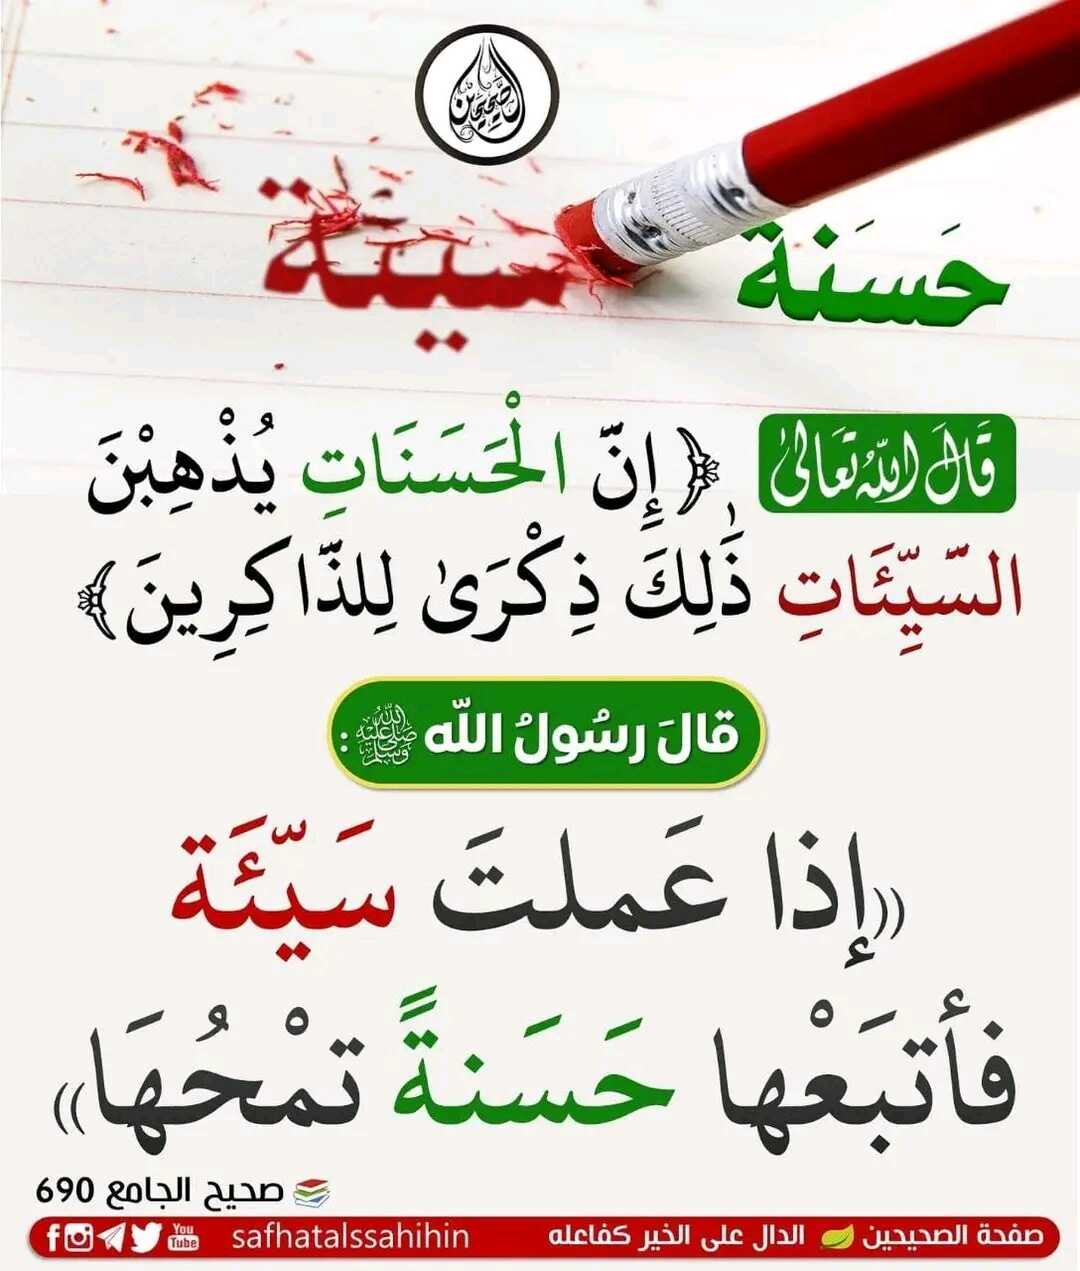 الصحيحين
حَسَنَة سيئَة
قَالَ اللهُ تَعَالَىٰ ﴿إِنَّ الْحَسَنَاتِ يُذْهِبْنَ
السَّيِّئَاتِ ذَٰلِكَ ذِكْرَىٰ لِلذَّاكِرِينَ﴾
قالَ رسُولُ اللّه ﷺ :
((إذا عَملتَ سَيّئَة
فأتبَعْها حَسَنةً تمْحُهَا))
صحيح الجامع 690
صفحة الصحيحين الدال على الخير كفاعله safhatalssahihin You Tube